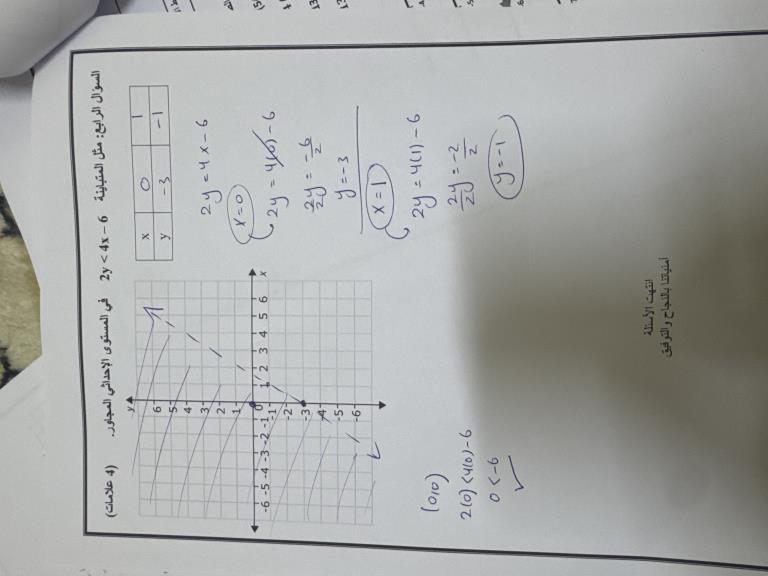 السؤال الرابع: مثل المتباينة 2y < 4x – 6 في المستوى الإحداثي المجاور. (4 علامات)
x 0 1
y -3 -1
2y = 4x - 6
x=0
2y = 4(0) - 6
2y/2 = -6/2
y = -3
x = 1
2y = 4(1) - 6
2y/2 = -2/2
y = -1
y
6
5
4
3
2
1
-6 -5 -4 -3 -2 -1 0 1 2 3 4 5 6 x
-1
-2
-3
-4
-5
-6
(0,0)
2(0) < 4(0) - 6
0 < -6 ✓
انتهت الأسئلة
أمنياتنا بالنجاح والتوفيق